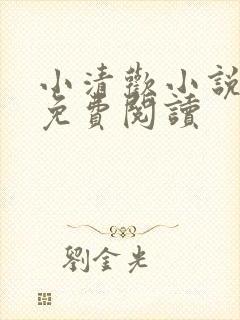 小清歡小說
免費閱讀
劉金光